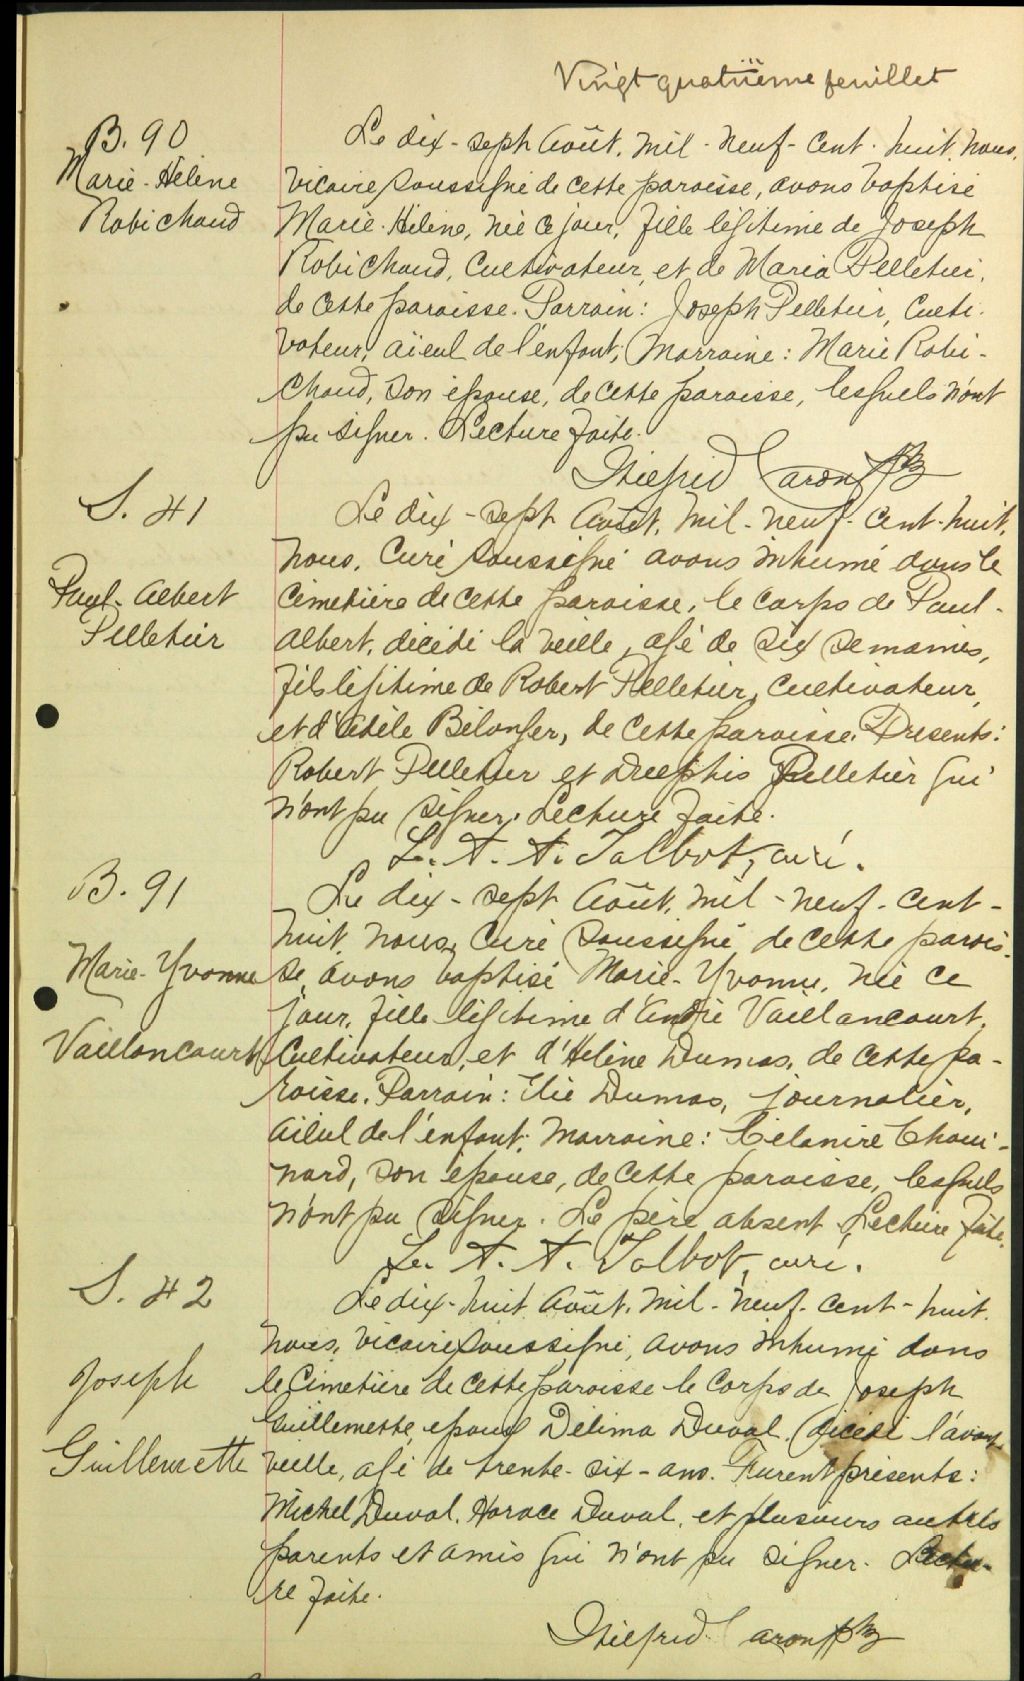 Vingt quatrième feuillet
B. 90
Marie-Hélène
Robichaud
Le dix-sept Août, mil-neuf-cent-huit, nous,
vicaire soussigné de cette paroisse, avons baptisé
Marie-Hélène, née ce jour, fille légitime de Joseph
Robichaud, cultivateur, et de Maria Pelletier,
de cette paroisse. Parrain: Joseph Pelletier, culti-
vateur, aïeul de l'enfant; Marraine: Marie Robi-
chaud, son épouse, de cette paroisse, lesquels n'ont
pu signer. Lecture faite.
Wilfrid Caron ptre
S. 41
Paul-Albert
Pelletier
Le dix-sept Août, mil-neuf-cent-huit,
nous, Curé soussigné avons inhumé dans le
cimetière de cette paroisse, le corps de Paul-
Albert, décédé la veille, agé de six semaines,
fils légitime de Robert Pelletier, cultivateur,
et d'Adèle Bélanger, de cette paroisse. Présents:
Robert Pelletier et Delphis Pelletier qui
n'ont pu signer. Lecture faite.
L. A. A. Talbot, curé.
B. 91
Marie-Yvonne
Vaillancourt
Le dix-sept Août, mil-neuf-cent-
huit, nous, Curé soussigné de cette parois-
se, avons baptisé Marie-Yvonne, née ce
jour, fille légitime d'André Vaillancourt,
cultivateur, et d'Hélène Dumas, de cette pa-
roisse. Parrain: Elie Dumas, journalier,
aïeul de l'enfant; Marraine: Célanire Choui-
nard, son épouse, de cette paroisse, lesquels
n'ont pu signer. Le père absent. Lecture faite.
L. A. A. Talbot, curé.
S. 42
Joseph
Guillemette
Le dix-huit Août, mil-neuf-cent-huit,
nous, vicaire soussigné, avons inhumé dans
le Cimetière de cette paroisse le corps de Joseph
Guillemette, époux Délima Duval, décédé l'avant-
veille, agé de trente-six-ans. Furent présents:
Michel Duval, Horace Duval, et plusieurs autres
parents et amis qui n'ont pu signer. Lectu-
re faite.
Wilfrid Caron ptre